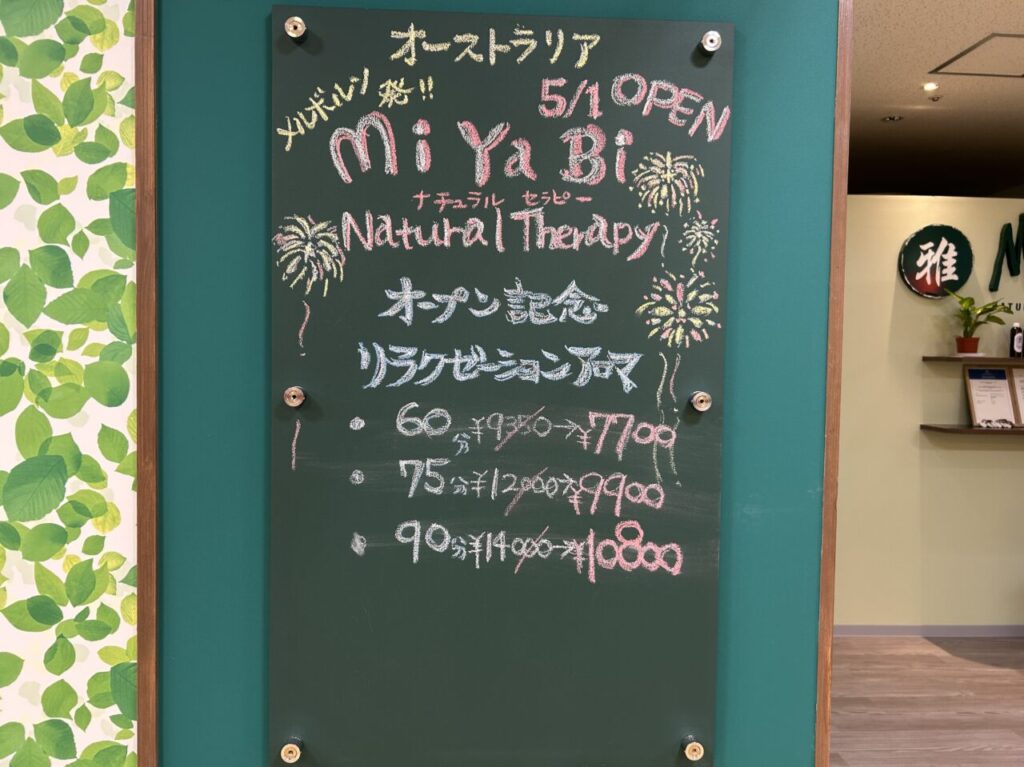 オーストラリア
メルボルン発!!
5/1 OPEN
Mi Ya Bi
ナチュラル セラピー
Natural Therapy
オープン記念
リラクゼーションアロマ
• 60分¥9350→¥7700
• 75分¥12000→¥9900
• 90分¥14000→¥10800
雅